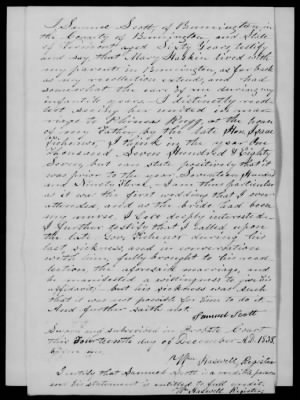 I Samuel Scott of Bennington, in
the County of Bennington, and State
of Vermont aged Sixty Years, testify
and say that Mary Haskin lived with
my parents in Bennington, as far back
as my recollection extends, and had
somewhat the care of me during my
infantile years. I distinctly recol-
lect seeing her united in mar-
riage to Phineas Rugg, at the house
of my Father, by the late Hon. Isaac
Tichenor, I think in the year One
Thousand Seven Hundred & Eighty
Seven, but can state positively that it
was prior to the year Seventeen Hundred
and Ninety Three. I am thus particular
as it was the first wedding that I ever
attended, and as the bride had been
my nurse, I felt deeply interested.
I further testify that I called upon
the late Gov. Tichenor during his
last sickness, and in conversation
with him, fully brought to his recol-
lection the aforesaid marriage, and
he manifested a willingness to give his
affidavit, but his sickness was such
that it was not possible for him to do it.
And further saith not.
Samuel Scott
Sworn and subscribed in Probate Court
this Fourteenth day of December A.D. 1838.
before me,
Wm Haswell, Register
I certify that Samuel Scott is a credible person
and his statement is entitled to full credit.
Wm Haswell Register